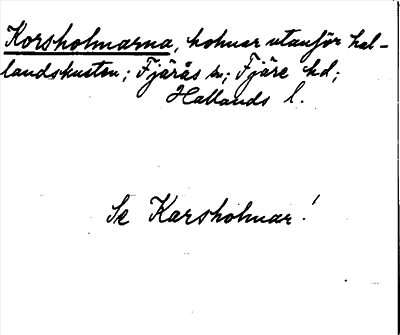 Korsholmarna, holmar utanför hal-
landskusten; Fjärås sn; Fjäre hd;
Hallands l.
Se Karsholmar!